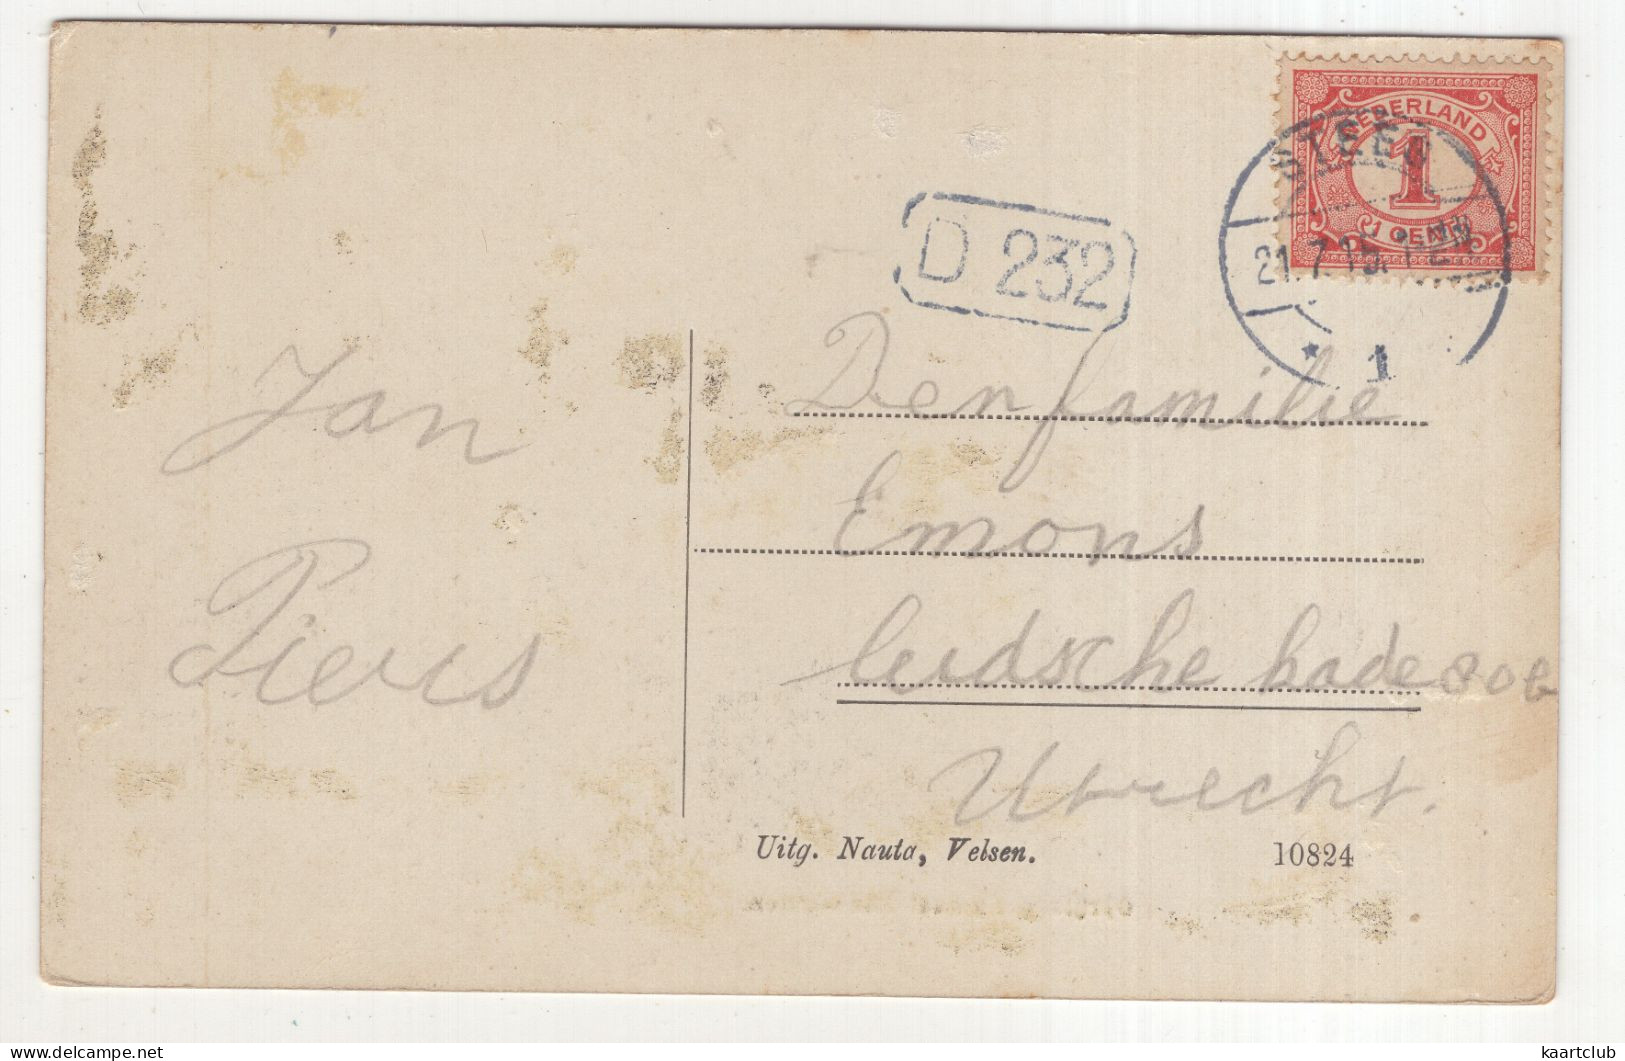 NEDERLAND
1
1 CENT
STEEG
21.7.15.
1
D 232
Jan
Piers
Den familie
Emons
leidsche kade 80 b
Utrecht.
Uitg. Nauta, Velsen.
10824
kaartclub